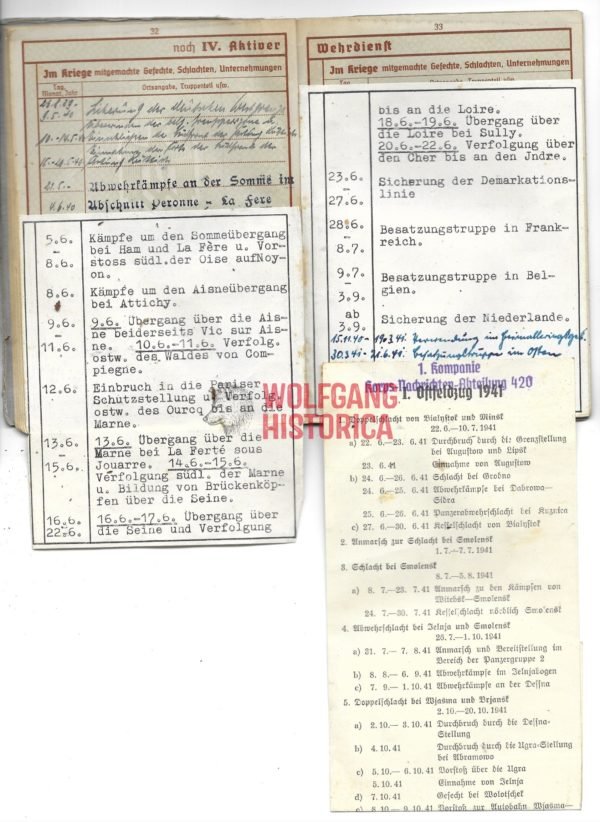 32
noch IV. Aktiver
Im Kriege mitgemachte Gefechte, Schlachten, Unternehmungen
Tag, Monat, Jahr
Ortsangabe, Truppenteil usw.
Sicherung der deutschen Westgrenze
9.5.40
21.5. – Abwehrkämpfe an der Somme im
4.6.40 Abschnitt Peronne – La Fere
5.6. Kämpfe um den Sommeübergang
– bei Ham und La Fère u. Vor-
8.6. stoss südl.der Oise aufNoy-
on.
8.6. Kämpfe um den Aisneübergang
bei Attichy.
9.6. 9.6. Übergang über die Ais-
– ne beiderseits Vic sur Ais-
11.6. ne. 10.6.-11.6. Verfolg.
ostw. des Waldes von Com-
piegne.
12.6. Einbruch in die Pariser
Schutzstellung u. Verfolg.
ostw. des Ourcq bis an die
Marne.
13.6. 13.6. Übergang über die
– Marne bei La Ferté sous
15.6. Jouarre. 14.6.-15.6.
Verfolgung südl. der Marne
u. Bildung von Brückenköp-
fen über die Seine.
16.6. 16.6.-17.6. Übergang über
22.6. die Seine und Verfolgung
33
Wehrdienst
Im Kriege mitgemachte Gefechte, Schlachten, Unternehmungen
Ortsangabe, Truppenteil usw.
bis an die Loire.
18.6.-19.6. Übergang über
die Loire bei Sully.
20.6.-22.6. Verfolgung über
den Cher bis an den Jndre.
23.6. Sicherung der Demarkations-
– linie
27.6.
28.6. Besatzungstruppe in Frank-
– reich.
8.7.
9.7. Besatzungstruppe in Bel-
– gien.
3.9.
ab Sicherung der Niederlande.
3.9.
15.11.40- 29.3.41. Verwendung im Heimatkriegsgeb.
30.3.41- 21.6.41. Besatzungstruppe im Osten
1. Kompanie
Korps-Nachrichten-Abteilung 420
1. Ostfeldzug 1941
1. Doppelschlacht von Bialystok und Minsk
22.6.—10.7.1941
a) 22. 6.—23. 6.41 Durchbruch durch die Grenzstellung
bei Augustow und Lipsk
23. 6.41 Einnahme von Augustow
b) 24. 6.—26. 6.41 Schlacht bei Grodno
24. 6.—25. 6.41 Abwehrkämpfe bei Dabrowa-
Sidra
25. 6.—26. 6.41 Panzerabwehrschlacht bei Kuznica
c) 27. 6.—30. 6.41 Kesselschlacht von Bialystok
2. Anmarsch zur Schlacht bei Smolensk
1.7.—7.7.1941
3. Schlacht bei Smolensk
8.7.—5.8.1941
a) 8. 7.—23. 7.41 Anmarsch zu den Kämpfen von
Witebsk—Smolensk
24. 7.—30. 7.41 Kesselschlacht nördlich Smolensk
4. Abwehrschlacht bei Jelnja und Smolensk
26.7.—1.10.1941
a) 31. 7.— 7. 8.41 Anmarsch und Bereitstellung im
Bereich der Panzergruppe 2
b) 8. 8.— 6. 9.41 Abwehrkämpfe im Jelnjabogen
c) 7. 9.— 1.10.41 Abwehrkämpfe an der Dessna
5. Doppelschlacht bei Wjasma und Brjansk
2.10.—20.10.1941
a) 2.10.— 3.10.41 Durchbruch durch die Dessna-
Stellung
b) 4.10.41 Durchbruch durch die Ugra-Stellung
bei Abramowo
c) 5.10.— 6.10.41 Vorstoß über die Ugra
5.10.41 Einnahme von Jelnja
d) 7.10.41 Gefecht bei Wolotschek
e) 8.10.— 9.10.41 Vorstoß zur Autobahn Wjasma—
WOLFGANG
HISTORICA